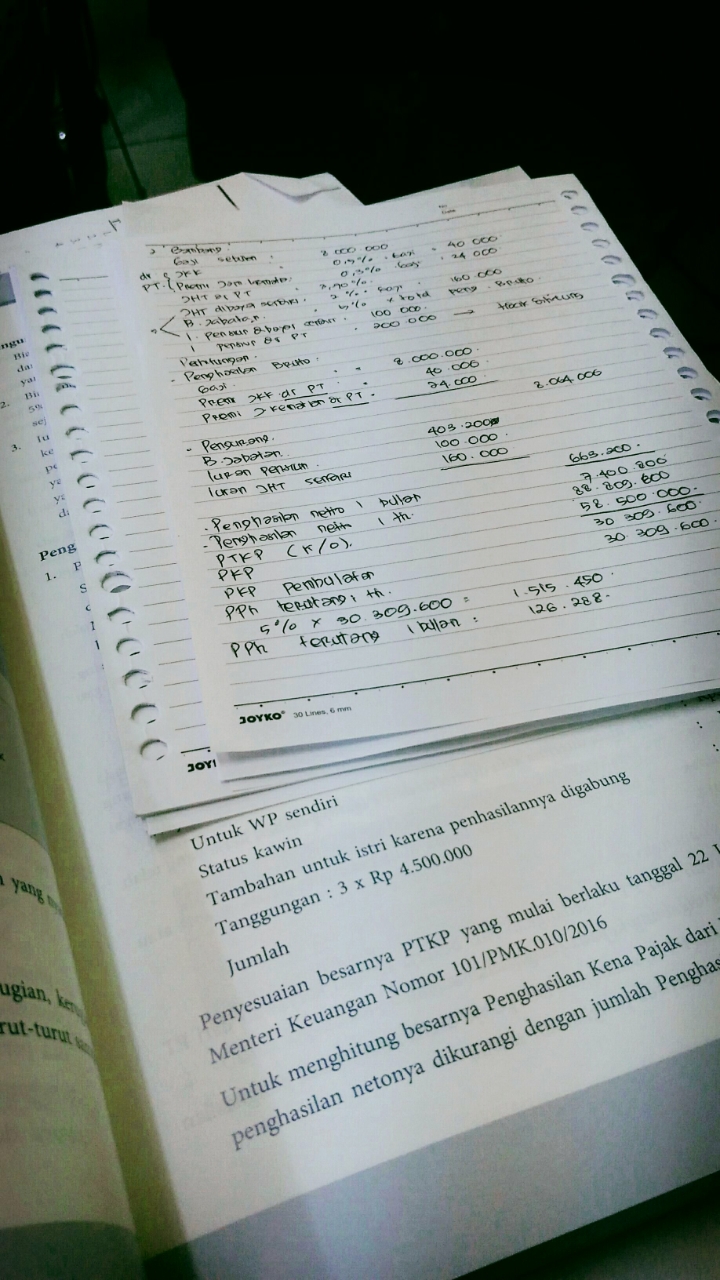 Bambang :
Gaji sebulan : 8 000 000
JKK 0,5% . Gaji = 40 000
PT. ( Premi 0,3% Gaji : 24 000
JHT dr PT 3,70%
JHT dibayar sendiri : 2% Gaji 160 000
B. Jabatan : 5% x total Peng. Bruto
100 000.
200 000 →
Perhitungan :
- Penghasilan Bruto :
Gaji 8.000.000.
Premi JKK dr PT 40.000
Premi J Kematian dr PT 24.000 8.064.000
- Pengurang.
B. Jabatan 403.200
Iuran Pensiun 100.000
Iuran JHT sendiri 160.000 663.200.
- Penghasilan netto 1 bulan 7.400.800
- Penghasilan netto 1 th. 88.809.600
PTKP (K/0). 58.500.000.
PKP 30 309.600.
PKP Pembulatan 30 309.600.
PPh terutang 1 th.
5% x 30.309.600 = 1.515.450
PPh terutang 1 bulan : 126.288.
JOYKO® 30 Lines, 6 mm
JOY
Untuk WP sendiri
Status kawin
Tambahan untuk istri karena penhasilannya digabung
Tanggungan : 3 x Rp 4.500.000
Jumlah
Penyesuaian besarnya PTKP yang mulai berlaku tanggal 22
Menteri Keuangan Nomor 101/PMK.010/2016
Untuk menghitung besarnya Penghasilan Kena Pajak dari
penghasilan netonya dikurangi dengan jumlah
yang
ugian,
rut-turut
2.
3.
Peng
1.